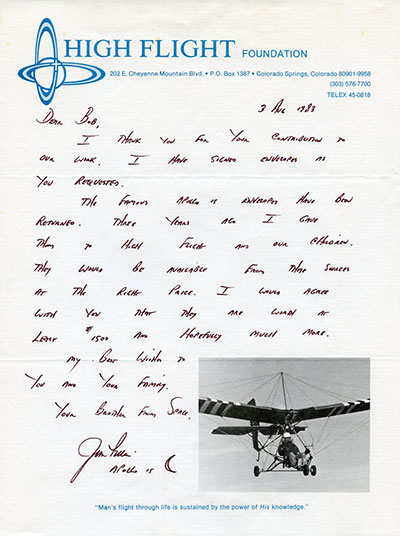 HIGH FLIGHT FOUNDATION
202 E. Cheyenne Mountain Blvd. • P.O. Box 1387 • Colorado Springs, Colorado 80901-9958
(303) 576-7700
TELEX 45-0818
3 Aug 1983
Dear Bob,
I thank you for your contribution to
our work. I have signed envelopes as
you requested.
The famous Apollo 15 envelopes have been
returned. Three years ago I gave
them to High Flight and our children.
They would be available from those sources
at the right price. I would agree
with you that they are worth at
least $1500 and hopefully much more.
My best wishes to
you and your family.
Your Brother from Space,
Jim
Apollo 15
"Man's flight through life is sustained by the power of His knowledge."